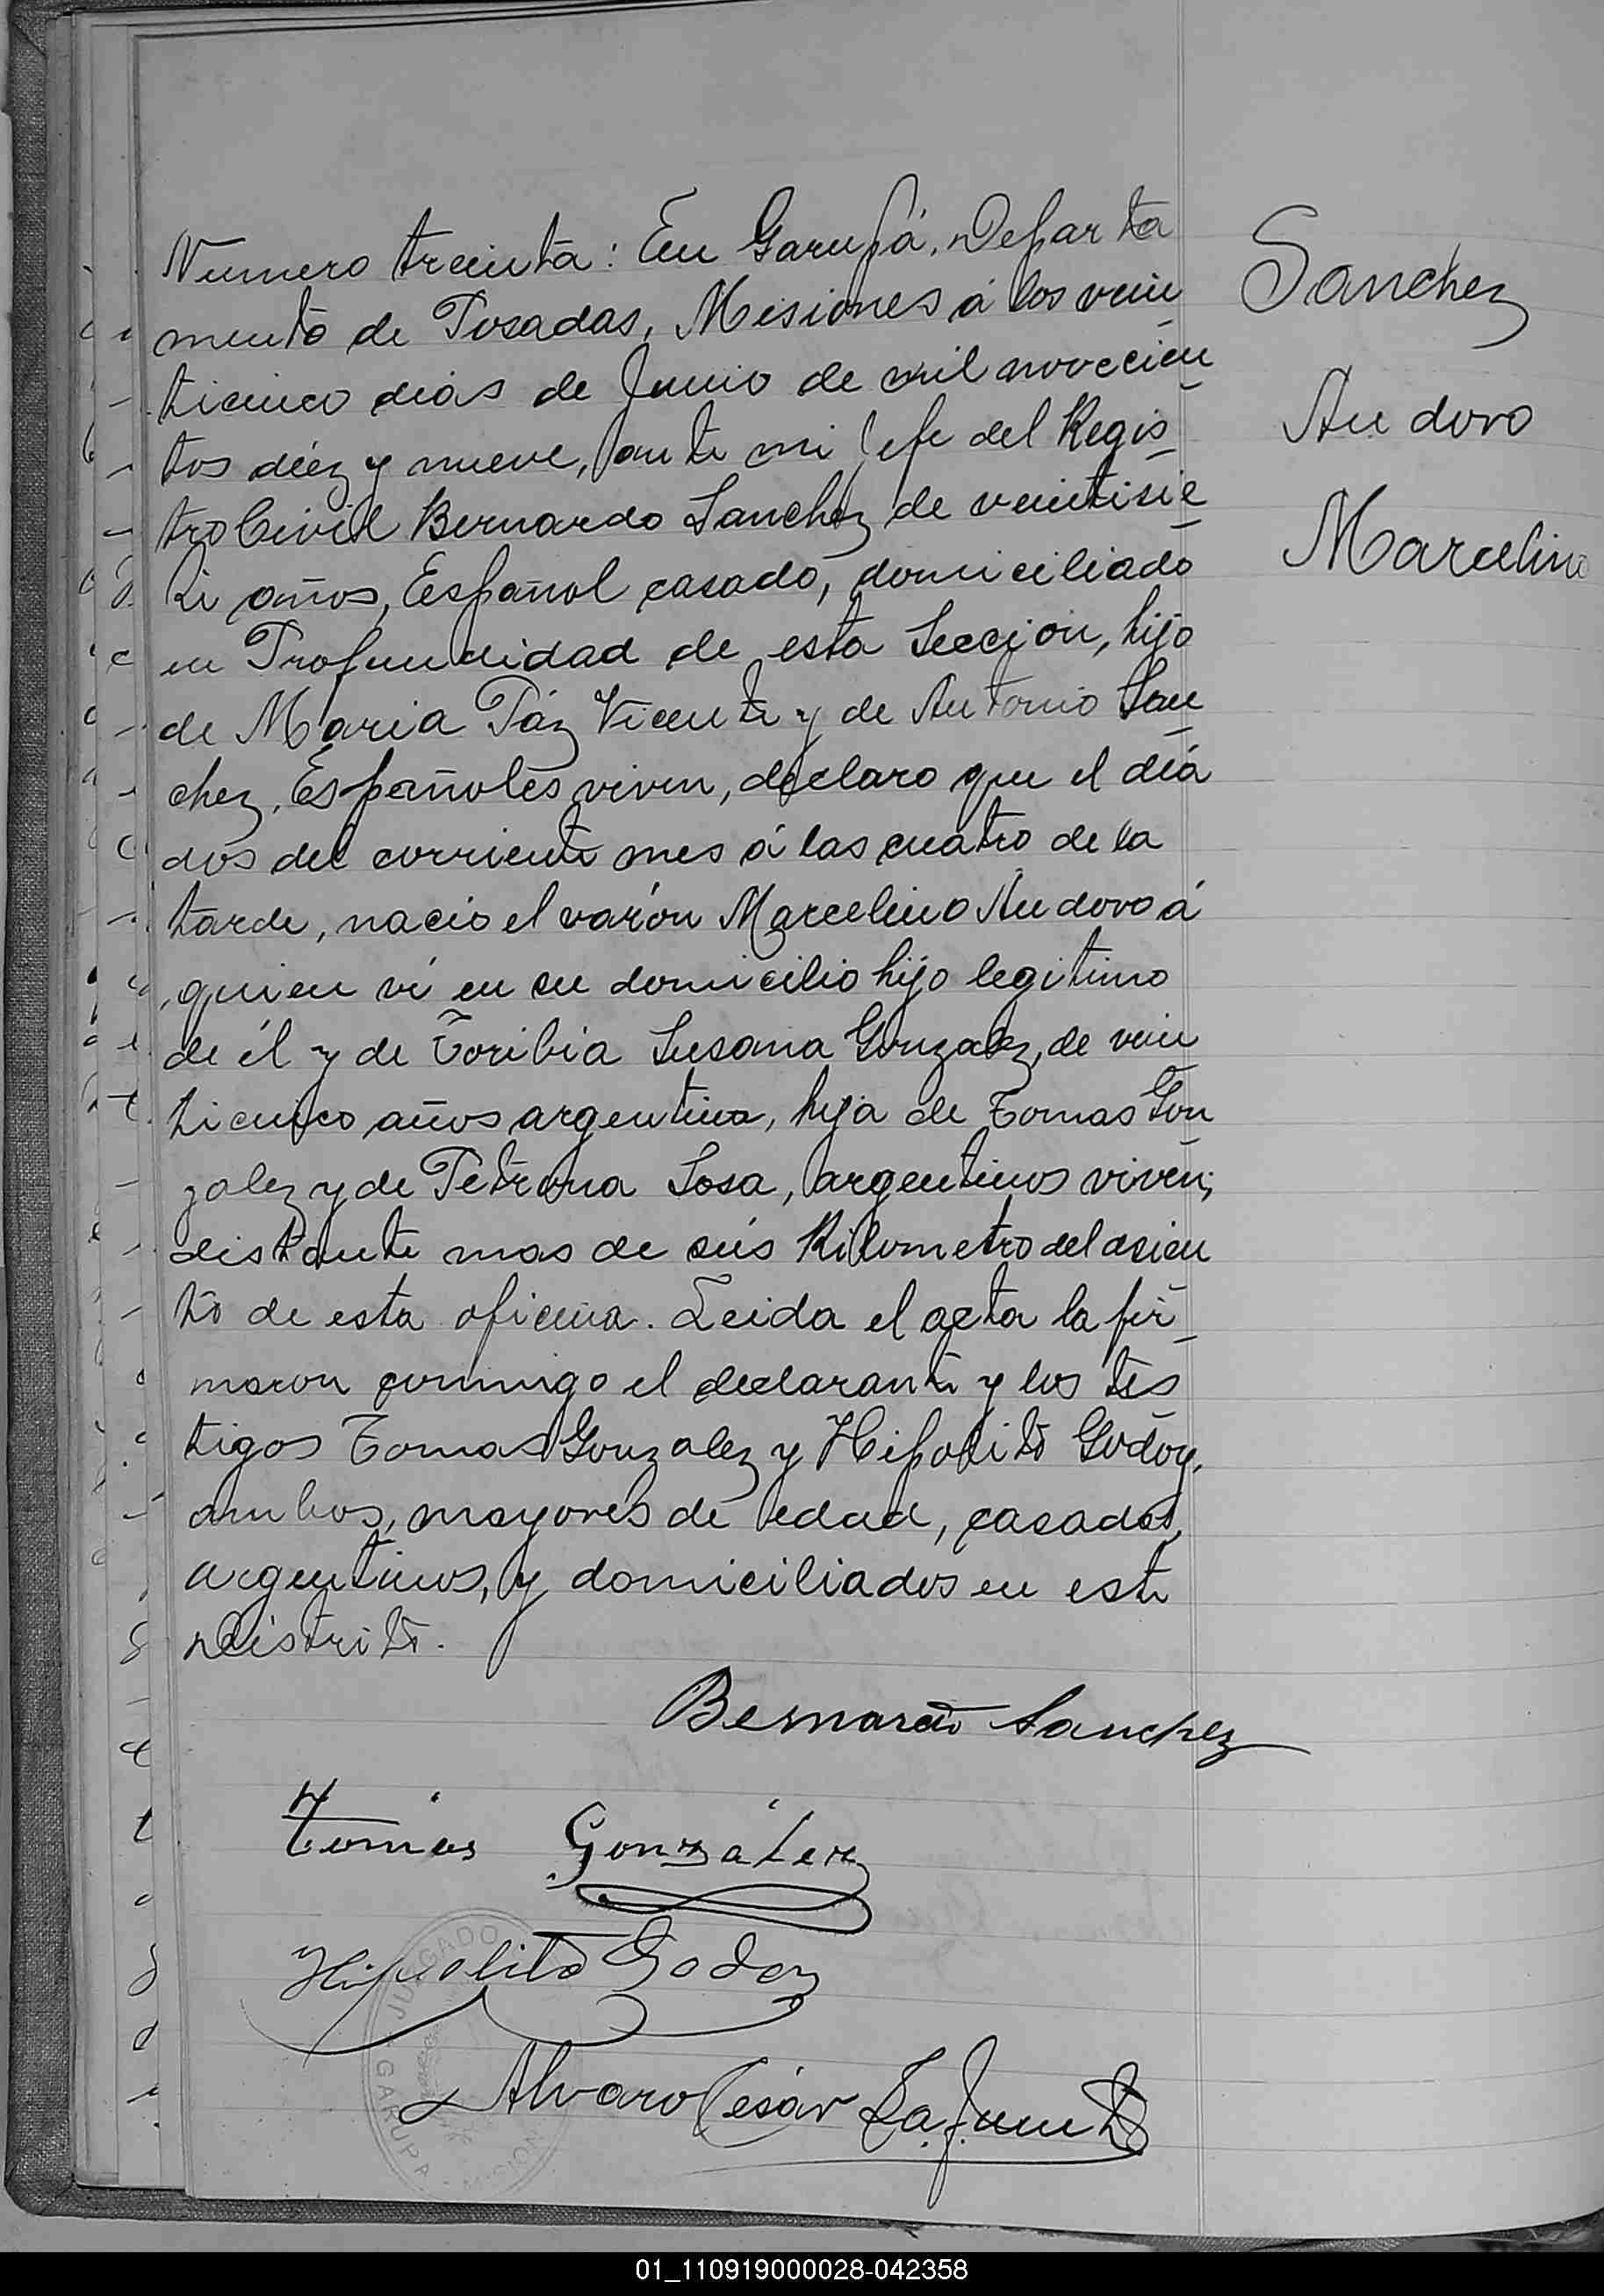 Numero treinta: En Garupá, Departa
mento de Posadas, Misiones á los vein
ticinco dias de Junio de mil novecien
tos diéz y nueve, ante mi Jefe del Regis
tro Civil Bernardo Sanchez de veintisie
te años, Español casado, domiciliado
en Profundidad de esta Sección, hijo
de Maria Páz Vicente y de Antonio San
chez, Españoles viven, declaro que el día
dos del corriente mes á las cuatro de la
tarde, nacio el varón Marcelino Audovo á
quien ví en su domicilio hijo legitimo
de él y de Toribia Susana Gonzalez, de vein
ticinco años argentina, hija de Tomas Gon
zalez y de Petrona Sosa, argentinos viven;
distante mas de seis Kilometro del asien
to de esta oficina. Leida el acta la fir
maron conmigo el declarante y los tes
tigos Tomas Gonzalez y Hipolito Godoy,
ambos, mayores de edad, casados,
argentinos, y domiciliados en este
Distrito.
Sanchez
Audovo
Marcelino
Bernardo Sanchez
Tomás González
Hipolito Godoy
JUZGADO
GARUPA
Alvaro Cesár
01_110919000028-042358